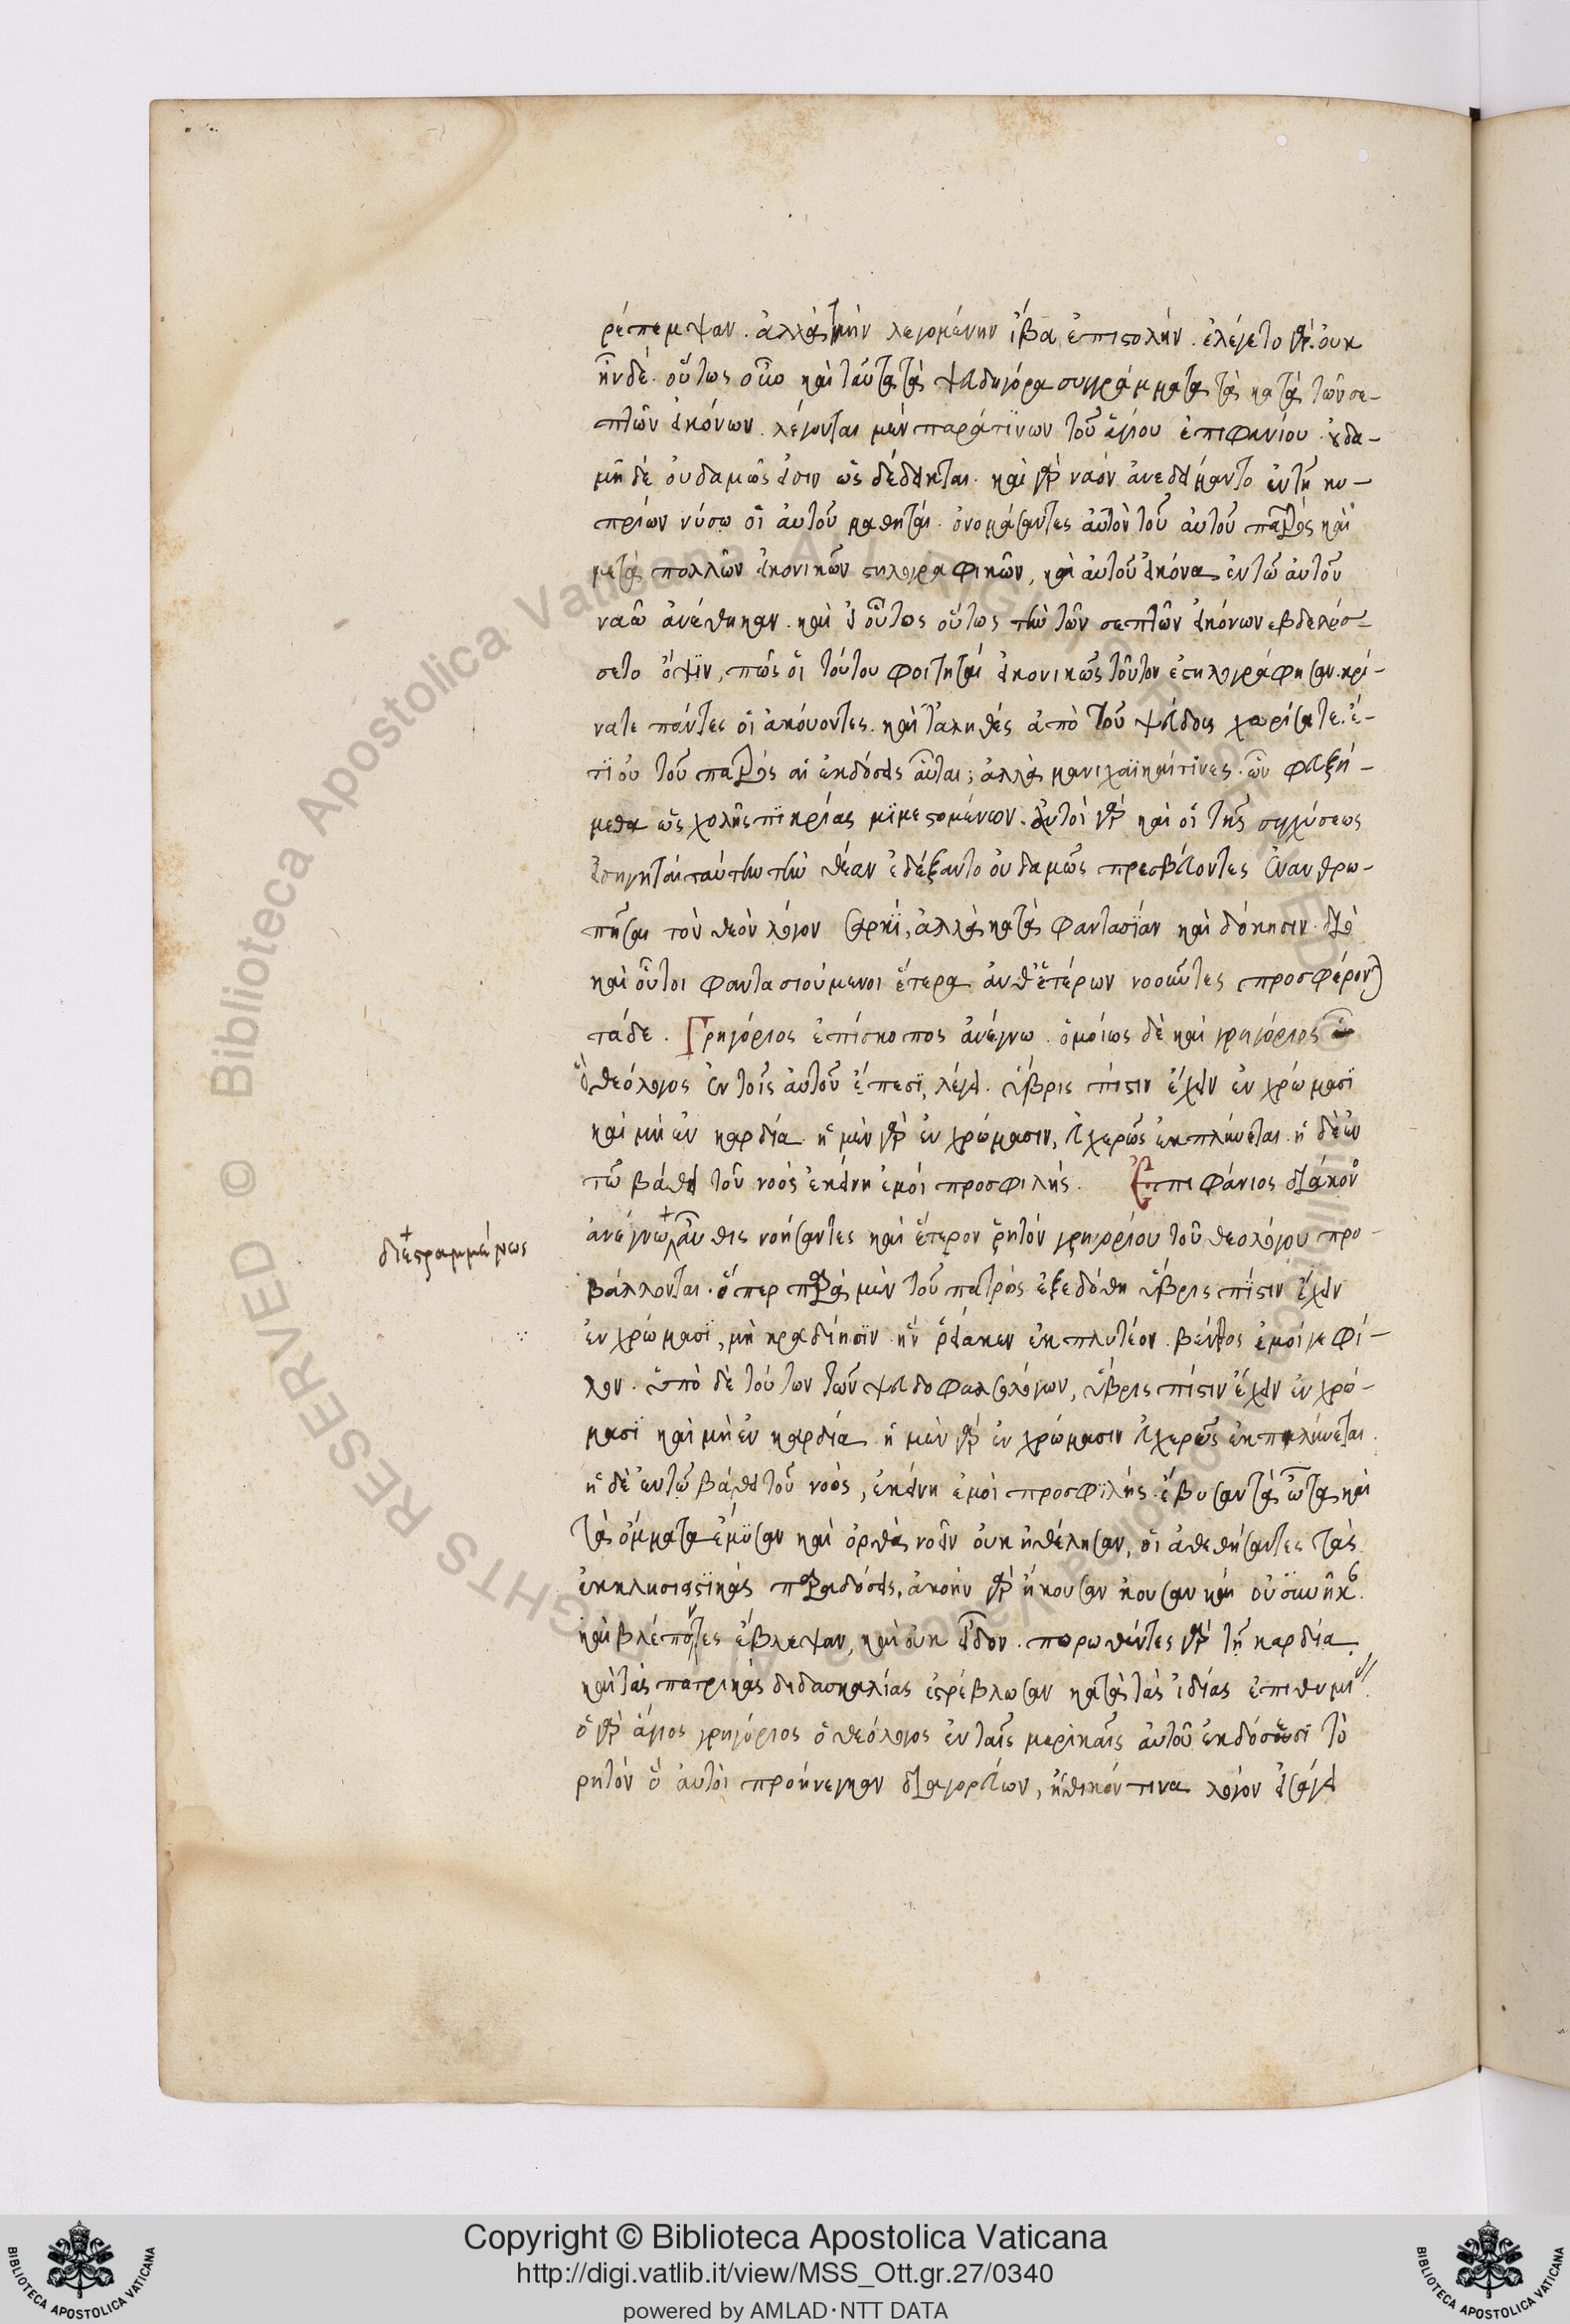 ρέπεμψαν. ἀλλὰ τὴν λεγομένην ἴβα ἐπιστολήν. ἐλέγετο γάρ. οὐκ
ἦν δέ. οὕτως οὖν καὶ ταῦτα τὰ ψευδηγόρα συγγράμματα τὰ κατὰ τῶν σε-
πτῶν εἰκόνων. λέγονται μὲν παρά τινων τοῦ ἁγίου ἐπιφανίου. οὐδα-
μῆ δὲ οὐδαμῶς εἰσιν ὡς δέδεικται. καὶ γὰρ ναὸν ἀνεδείμαντο ἐν τῆ κυ-
πρίων νήσω οἱ αὐτοῦ μαθηταί. ὀνομάσαντες αὐτὸν τοῦ αὐτοῦ πατρὸς καὶ
μετὰ πολλῶν εἰκονικῶν στηλογραφικῶν, καὶ αὐτοῦ εἰκόνα ἐν τῶ αὐτοῦ
ναῶ ἀνέθηκαν. καὶ εἰ οὗτος οὕτως τὴν τῶν σεπτῶν εἰκόνων ἐβδελύσ-
σετο ὄψιν, πῶς οἱ τούτου φοιτηταὶ εἰκονικῶς τοῦτον ἐστηλογράφησαν. κρί-
νατε πάντες οἱ ἀκούοντες. καὶ τἀληθές ἀπὸ τοῦ ψεύδους χωρίσατε. ἔ-
τι οὐ τοῦ πατρὸς αἱ ἐκδόσεις αὗται; ἀλλὰ μανιχαϊκαί τινες. ὧν φευξό-
μεθα ὡς χολῆς πικρίας μιμεστομένων. αὐτοὶ γὰρ καὶ οἱ τῆς συγχύσεως
εἰσηγηταὶ ταύτην τὴν θέαν ἐδέξαντο οὐδαμῶς πρεσβεύοντες ἐνανθρω-
πῆσαι τὸν θεὸν λόγον σαρκί, ἀλλὰ κατὰ φαντασίαν καὶ δόκησιν. διὸ
καὶ οὗτοι φαντασιούμενοι ἕτερα ἀνθ' ἑτέρων νοοῦντες προσφέρονται
τάδε. Γρηγόριος ἐπίσκοπος ἀνέγνω. ὁμοίως δὲ καὶ γρηγόριος
ὁ θεόλογος ἐν τοῖς αὐτοῦ ἔπεσι, λέγει. ὕβρις πίστιν ἔχειν ἐν χρώμασι
καὶ μὴ ἐν καρδία. ἡ μὲν γὰρ ἐν χρώμασιν, εὐχερῶς ἐκπλύνεται. ἡ δὲ ἐν
τῶ βάθει τοῦ νοὸς ἐκείνη ἐμοὶ προσφιλής. Ἐπιφάνιος διάκονος
ἀνέγνω. αὖθις νοήσαντες καὶ ἕτερον ῥητὸν γρηγορίου τοῦ θεολόγου προ-
διεστραμμένως
βάλλονται. ὅπερ παρὰ μὲν τοῦ πατρὸς ἐξεδόθη ὕβρις πίστιν ἔχειν
ἐν χρώμασι, μὴ κραδίησιν. ἣν ῥεῖά κεν ἐκπλυτέον. βένθος ἐμοί γε φί-
λον. ὑπὸ δὲ τούτων τῶν ψευδοφαλσολόγων, ὕβρις πίστιν ἔχειν ἐν χρώ-
μασι καὶ μὴ ἐν καρδία. ἡ μὲν γὰρ ἐν χρώμασιν εὐχερῶς ἐκπλύνεται.
ἡ δὲ ἐν τῶ βάθει τοῦ νοὸς, ἐκείνη ἐμοὶ προσφιλής. ἔβυσαν τὰ ὦτα καὶ
τὰ ὄμματα ἔμυσαν καὶ ὀρθὰ νοεῖν οὐκ ἠθέλησαν, οἱ ἀθετήσαντες τὰς
ἐκκλησιαστικὰς παραδόσεις, ἀκοὴν γὰρ ἤκουσαν καὶ οὐ συνῆκαν.
καὶ βλέποντες ἔβλεψαν, καὶ οὐκ εἶδον. πωρωθέντες γὰρ τῆ καρδία
καὶ τὰς πατρικὰς διδασκαλίας ἐστρέβλωσαν κατὰ τὰς ἰδίας ἐπιθυμίας.
ὁ γὰρ ἅγιος γρηγόριος ὁ θεόλογος ἐν ταῖς μερικαῖς αὐτοῦ ἐκδόσεσι τὸ
ρητὸν ὃ αὐτοὶ προήνεγκαν διαγορεύων, ἠθικόν τινα λόγον εἰσάγει
Biblioteca Apostolica Vaticana ALL RIGHTS RESERVED ©
BIBLIOTECA APOSTOLICA VATICANA
Copyright © Biblioteca Apostolica Vaticana
http://digi.vatlib.it/view/MSS_Ott.gr.27/0340
powered by AMLAD·NTT DATA
BIBLIOTECA APOSTOLICA VATICANA